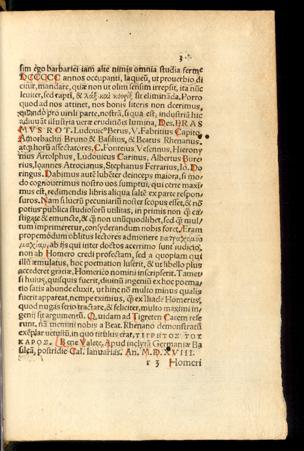 sim ego barbariei iam alie nimis omnia studia ferme
DCCCCC annos occupanti, laqueū, ut prouerbio di
citur, mandare, quæ non ut olim sensim irrepsit, ita nūc
leuiter, sed rapti, & elimināda. Porro
quod ad nos attinet, nos bonis literis non deerimus,
pro uirili parte, nostra, si qua est, industria hic
adiuuāt illustria ueræ eruditiōis lumina, Des. ERAS
MVS ROT. Ludouic⁹ Berus, V. Fabritius Capito,
Amorbachii Bruno & Basilius, & Beatus Rhenanus,
atq; horū assectatores, C. Fonteius, Hierony
mus Artolphus, Ludouicus Carinus, Albertus Bure-
rius, Ioannes Atrocianus, Stephanus Ferrarius, Io. Do
ringus. Dabimus autē lubēter deinceps maiora, si mo
do cognouerimus nostro uos sumptui, qui certe maxi
mus est, redimendis libris aliqua saltē ex parte respon-
suros. Nam si lucrū pecuniariū noster scopus esset, & nō
potius publica studiosorū utilitas, in primis non
stigage & emuncte, & non unūquodlibet, sed mul-
tum imprimeretur, consyderandum nobis foret. Eram
propemodum oblitus lectores admonere
ab his qui inter doctos acerrimo sunt iudicio,
non ab Homero credi profectam, sed a quopiam qui
illū æmulatus, hoc poematiон luserit, & ut libello plus
accederet gratiæ, Homerico nomini inscripserit. Tamet
si huius, quisquis fuerit, diuinū ingeniū ex hoc poema-
tio satis abunde eluxit, ut hinc nō multo minus qualis
fuerit appareat, nempe eximius, ex iliade Homerus,
quod nugas serio tractare, & feliciter, multo maximi in-
genii sit argumentū. Quidam ad Tigretem Carem refe
runt, nā memini nobis a Beat. Rhenano demonstratū
exēplar uetustū, in quo titulus erat, ΤΙΓΡΗΤΟΣ ΤΟΥ
ΚΑΡΟΣ. Bene Valete. Apud inclytā Germaniæ Ba
sileā, postridie Cal. Ianuarias. An. M.D.XVIII.
r 3 Homeri